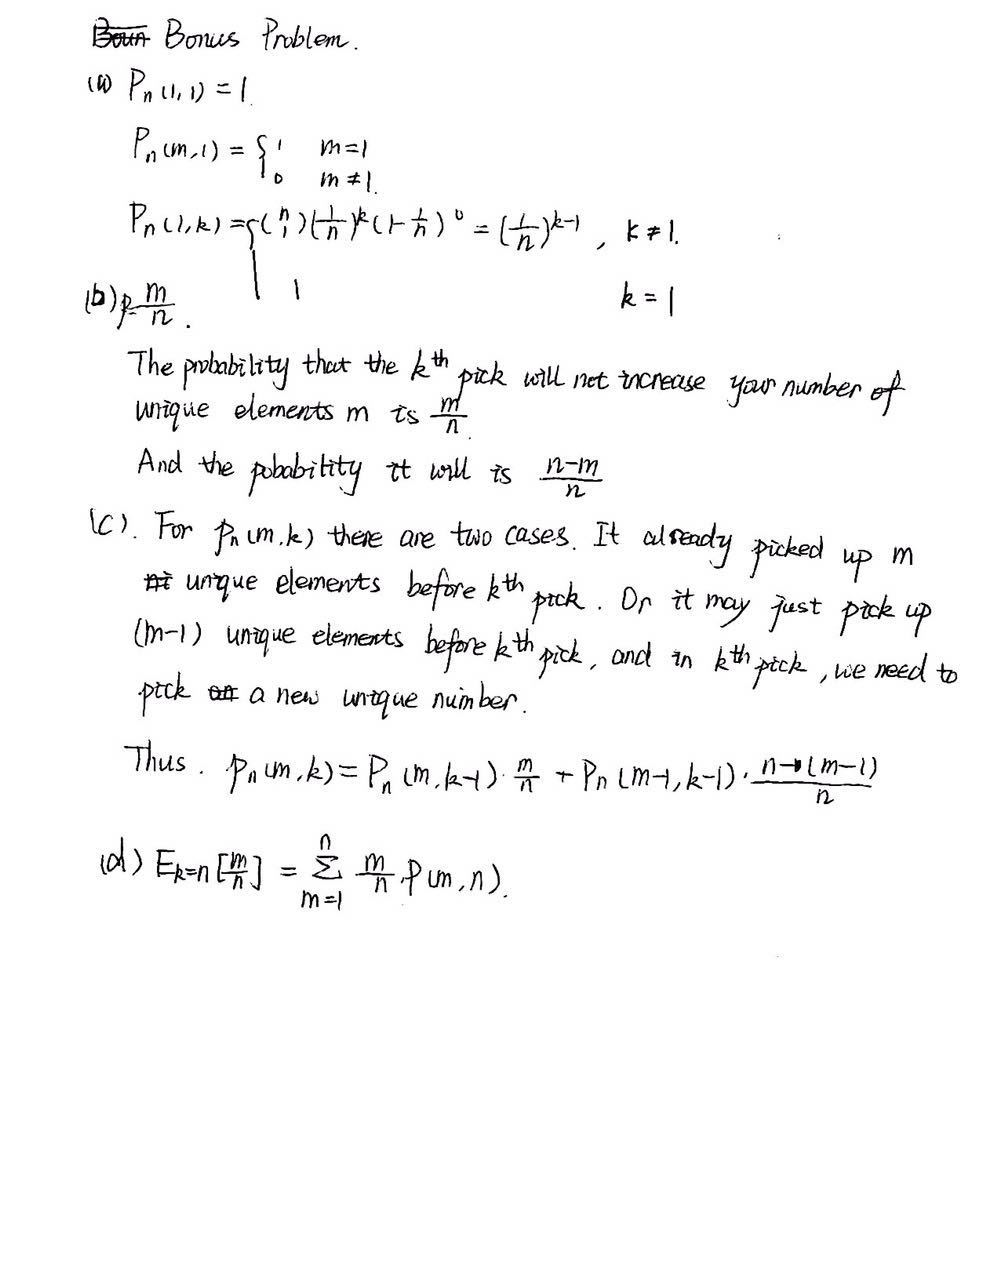 Bonus Problem.
(a) Pn(1,1) = 1
Pn(m,1) = { 1 m=1
0 m≠1.
Pn(1,k) = { (n 1)(1/n)^k (1-1/n)^0 = (1/n)^(k-1), k≠1.
1 k=1
(b) p= m/n.
The probability that the kth pick will not increase your number of
unique elements m is m/n.
And the pobability it will is (n-m)/n
(c). For Pn(m,k) there are two cases. It already picked up m
unique elements before kth pick. Or it may just pick up
(m-1) unique elements before kth pick, and in kth pick, we need to
pick a new unique number.
Thus. Pn(m,k) = Pn(m,k-1)·m/n + Pn(m-1,k-1)·(n-(m-1))/n
(d) Ek=n[m/n] = Σ_{m=1}^{n} m/n·P(m,n).